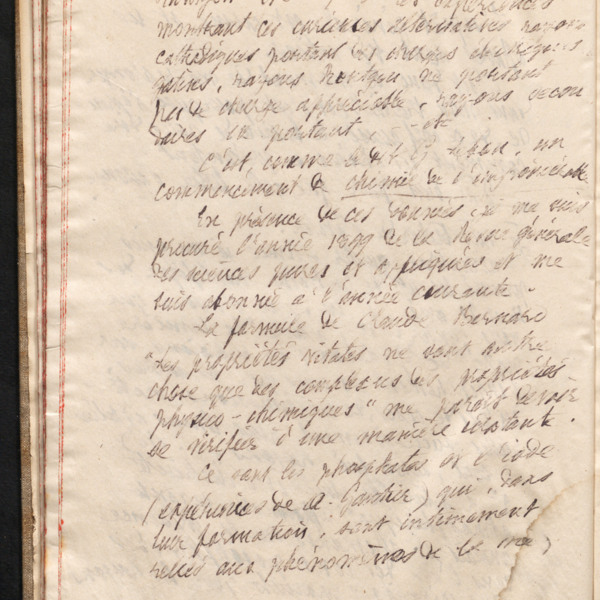 les expériences
montrant ces curieuses alternatives rayons
cathodiques portant des charges électriques
rayons Röntgen ne portant
pas de charge appréciable, rayons secon
daires en portant. etc
C'est, comme le dit un
commencement de chimie de l'impondérable
En présence de ces données, je me suis
procuré l'année 1899 de la Revue générale
des sciences pures et appliquées et me
suis abonné à l'année courante.
La formule de Claude Bernard
"Les propriétés vitales ne sont autre
chose que des complexus des propriétés
physico-chimiques" me paraît devoir
se vérifier d'une manière éclatante.
Ce sont les phosphates et l'iode
(expériences de M. Gautier) qui, dans
leur formation, sont intimement
reliés aux phénomènes de la vie,